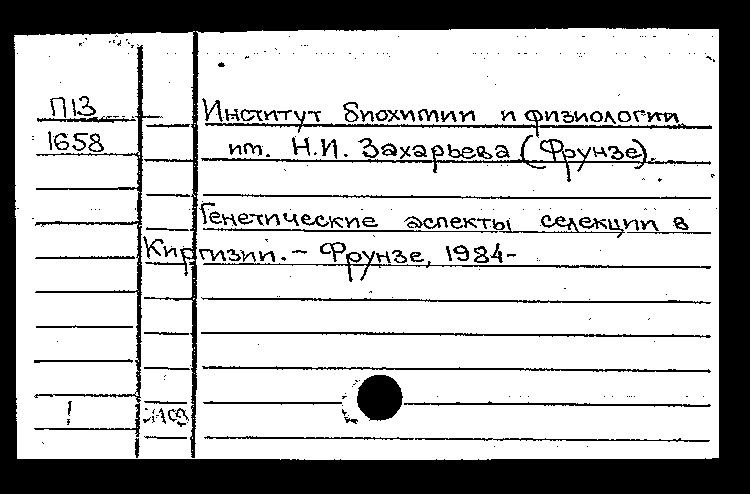 П13
1658
Институт биохимии и физиологии
им. Н.И. Захарьева (Фрунзе).
Генетические аспекты селекции в
Киргизии. – Фрунзе, 1984-
!